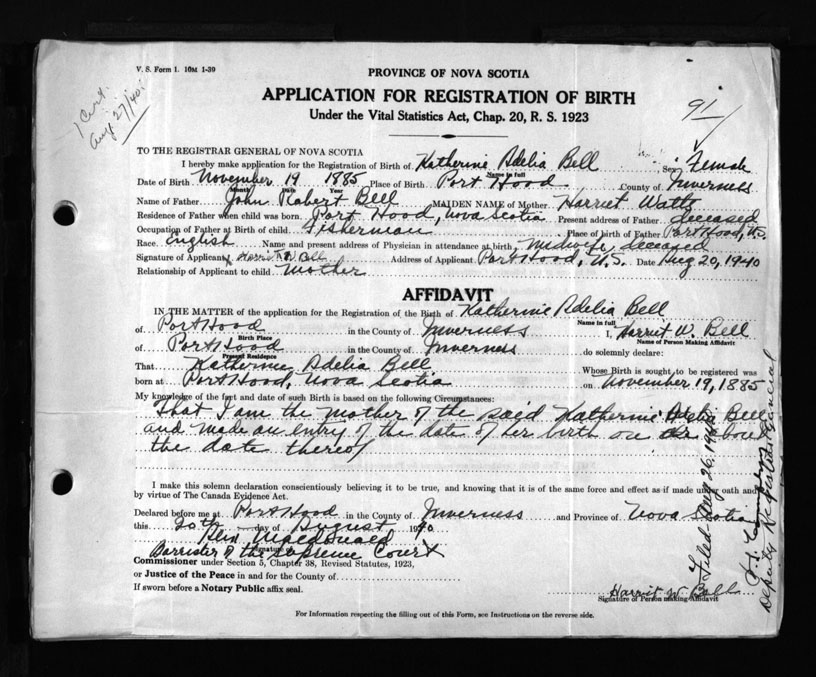 V. S. Form 1. 10M 1-39
1 Cert.
Aug 27/40
PROVINCE OF NOVA SCOTIA
APPLICATION FOR REGISTRATION OF BIRTH
Under the Vital Statistics Act, Chap. 20, R. S. 1923
TO THE REGISTRAR GENERAL OF NOVA SCOTIA
I hereby make application for the Registration of Birth of Katherine Adelia Bell Sex Female
Name in full
Date of Birth November 19 1885 Place of Birth Port Hood County of Inverness
Month Date Year
Name of Father John Robert Bell MAIDEN NAME of Mother Harriet Watts
Residence of Father when child was born Port Hood, Nova Scotia Present address of Father deceased
Occupation of Father at Birth of child Fisherman Place of Birth of Father Port Hood, N.S.
Race English Name and present address of Physician in attendance at birth, Midwife, deceased
Signature of Applicant Harriet W Bell Address of Applicant Port Hood, N.S. Date Aug 20, 1940
Relationship of Applicant to child Mother
AFFIDAVIT
IN THE MATTER of the application for the Registration of the Birth of Katherine Adelia Bell
Name in full
of Port Hood in the County of Inverness I, Harriet W. Bell
Birth Place Name of Person Making Affidavit
of Port Hood in the County of Inverness do solemnly declare:
Present Residence
That Katherine Adelia Bell Whose Birth is sought to be registered was
born at Port Hood, Nova Scotia on November 19, 1885
My knowledge of the fact and date of such Birth is based on the following Circumstances:
That I am the mother of the said Katherine Adelia Bell
and made an entry of the date of her birth on or about
the date thereof
I make this solemn declaration conscientiously believing it to be true, and knowing that it is of the same force and effect as if made under oath and
by virtue of The Canada Evidence Act.
Declared before me at Port Hood in the County of Inverness and Province of Nova Scotia
this 20th day of August 1940
Macdonald
Signature of
Barrister of the Supreme Court
Commissioner under Section 5, Chapter 38, Revised Statutes, 1923,
or Justice of the Peace in and for the County of
If sworn before a Notary Public affix seal.
Harriet W Bell
Signature of Person making Affidavit
For Information respecting the filling out of this Form, see Instructions on the reverse side.
Filed Aug 26, 1940
Deputy Registrar General